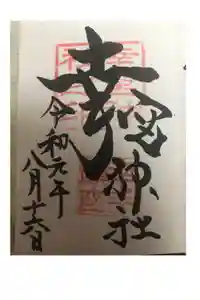 幸宮神社
令和元年
八月十六日